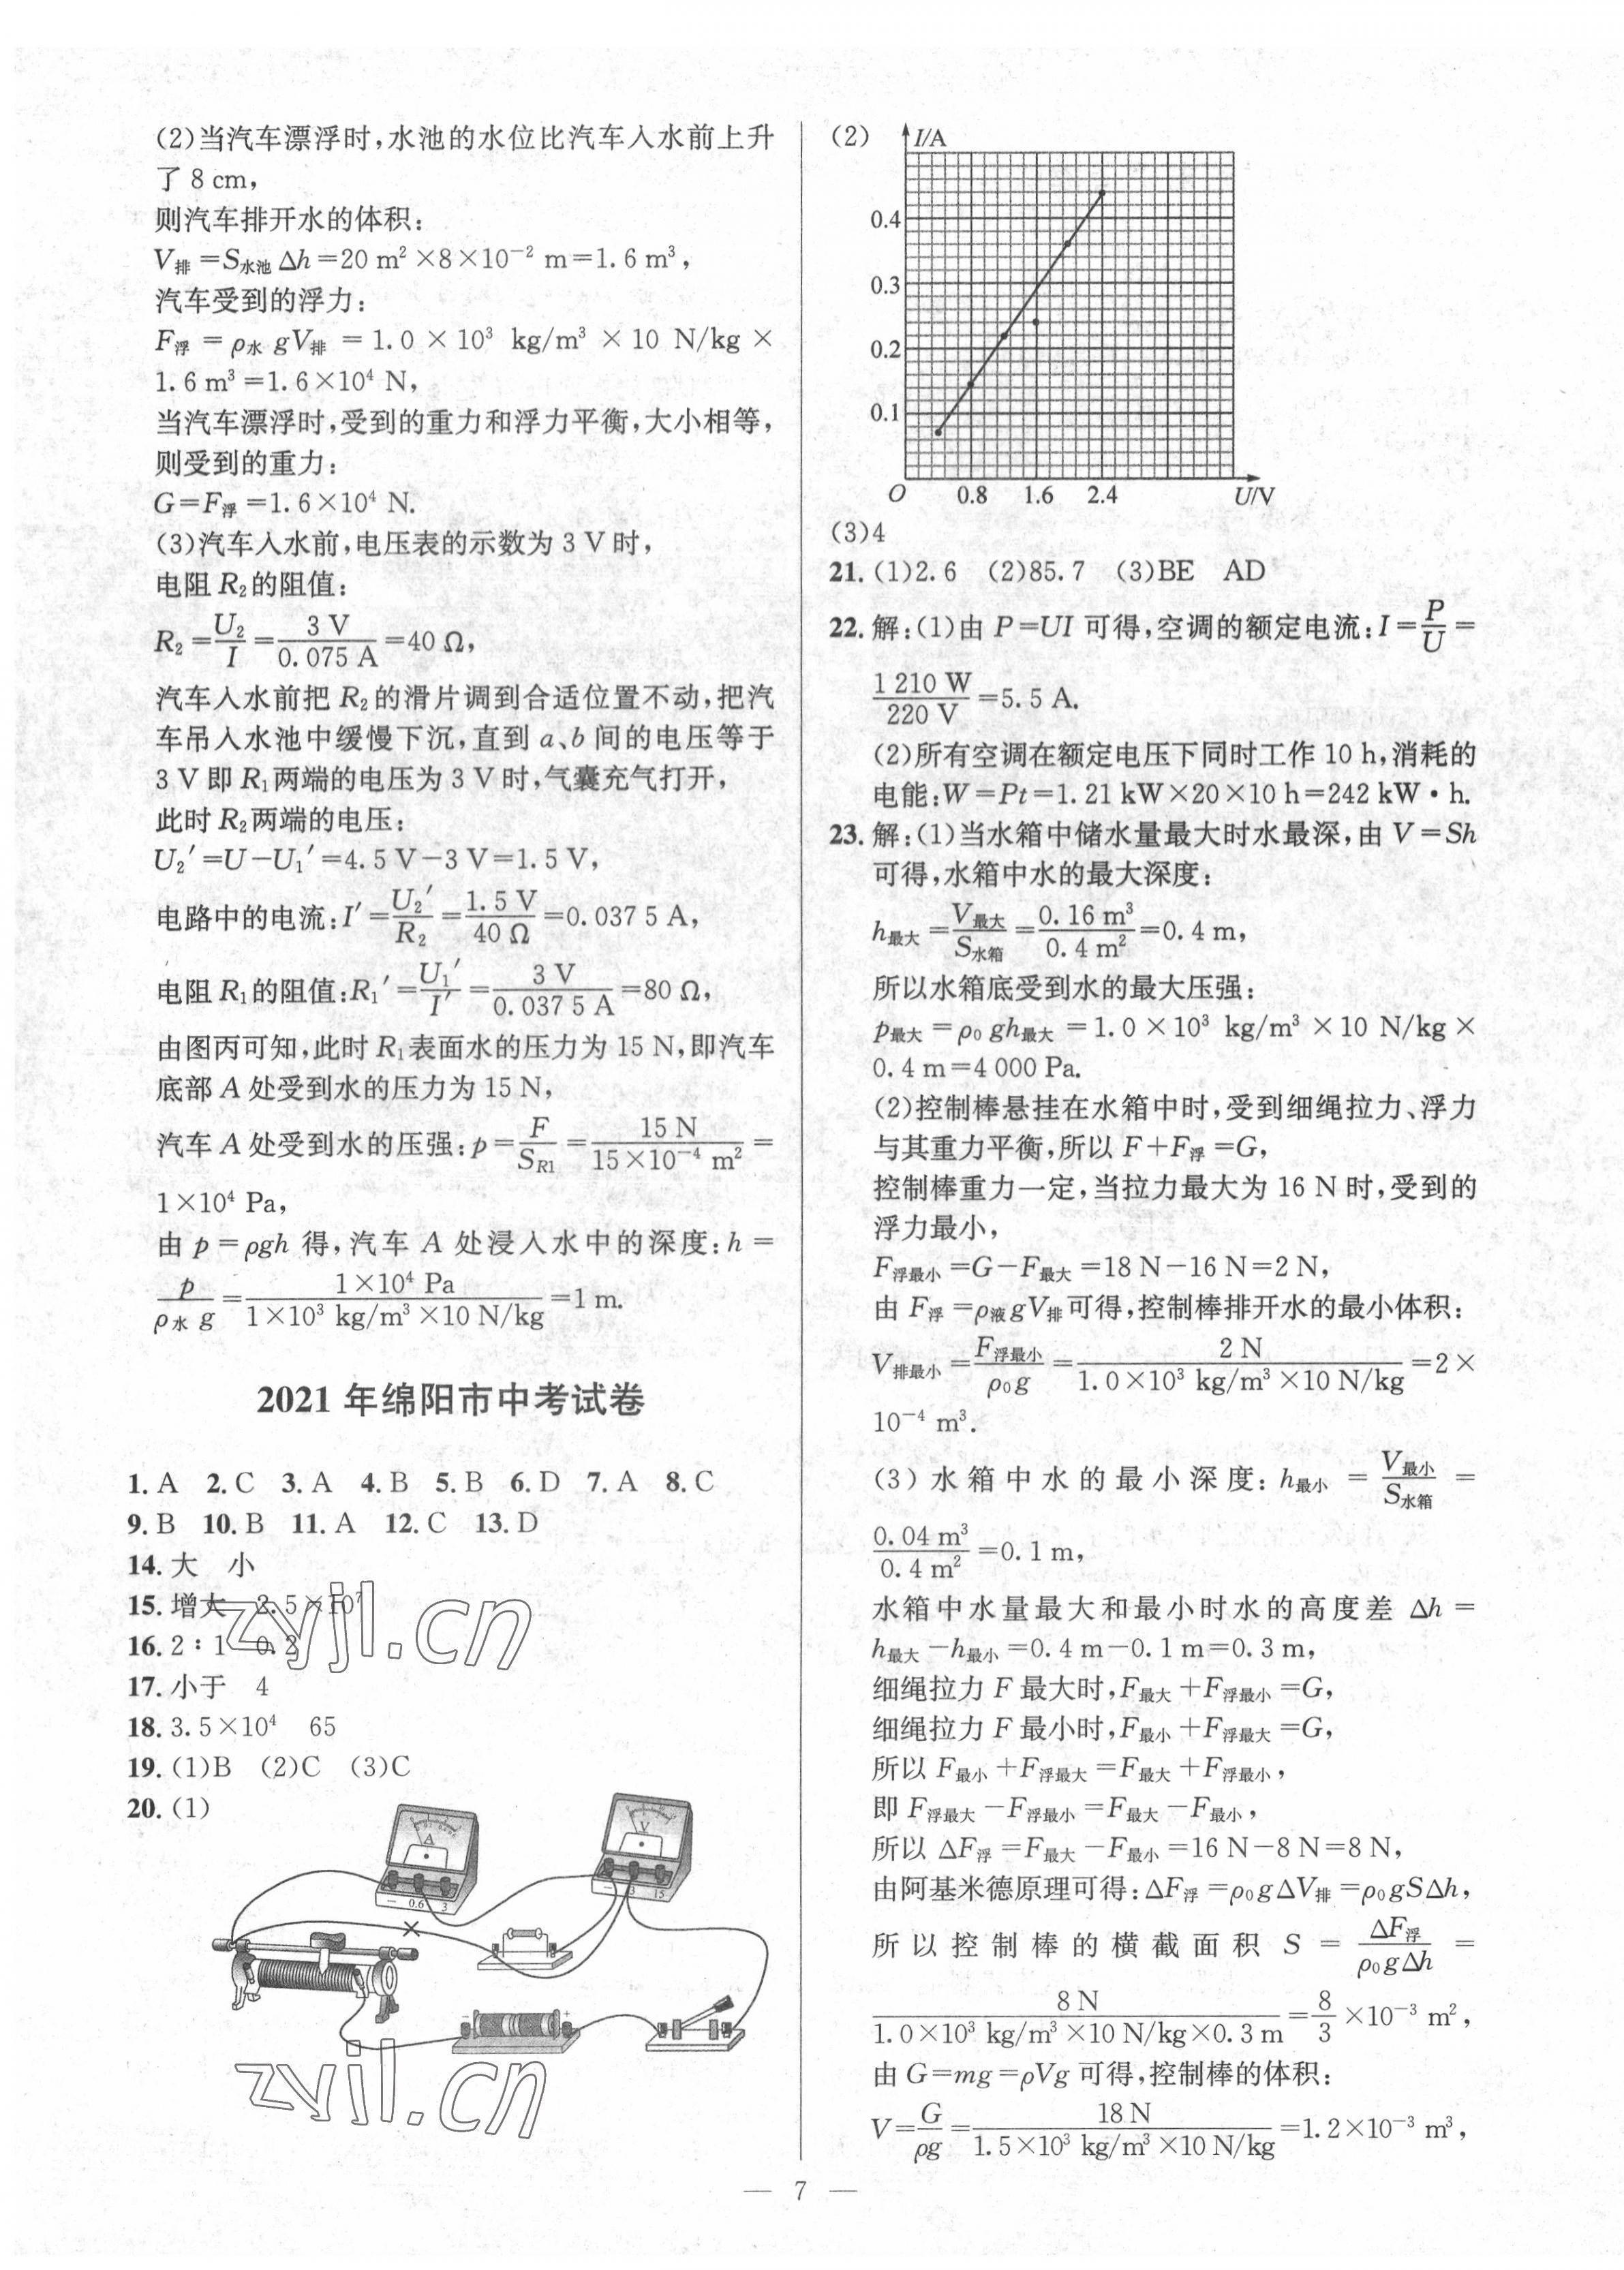 (2)当汽车漂浮时,水池的水位比汽车入水前上升
了 8 cm,
则汽车排开水的体积:
V排=S水池Δh=20 m²×8×10⁻² m=1.6 m³,
汽车受到的浮力:
F浮=ρ水gV排=1.0×10³ kg/m³×10 N/kg×
1.6 m³=1.6×10⁴ N,
当汽车漂浮时,受到的重力和浮力平衡,大小相等,
则受到的重力:
G=F浮=1.6×10⁴ N.
(3)汽车入水前,电压表的示数为 3 V 时,
电阻 R₂的阻值:
R₂=U₂/I=3 V/0.075 A=40 Ω,
汽车入水前把 R₂的滑片调到合适位置不动,把汽
车吊入水池中缓慢下沉,直到 a、b 间的电压等于
3 V 即 R₁两端的电压为 3 V 时,气囊充气打开,
此时 R₂两端的电压:
U₂′=U−U₁′=4.5 V−3 V=1.5 V,
电路中的电流:I′=U₂′/R₂=1.5 V/40 Ω=0.037 5 A,
电阻 R₁的阻值:R₁′=U₁′/I′=3 V/0.037 5 A=80 Ω,
由图丙可知,此时 R₁表面水的压力为 15 N,即汽车
底部 A 处受到水的压力为 15 N,
汽车 A 处受到水的压强:p=F/S_R1=15 N/15×10⁻⁴ m²=
1×10⁴ Pa,
由 p=ρgh 得,汽车 A 处浸入水中的深度:h=
p/ρ水g=1×10⁴ Pa/1×10³ kg/m³×10 N/kg=1 m.
2021 年绵阳市中考试卷
1. A 2. C 3. A 4. B 5. B 6. D 7. A 8. C
9. B 10. B 11. A 12. C 13. D
14. 大 小
15. 增大 2.5×10⁷
16. 2∶1 0.2
17. 小于 4
18. 3.5×10⁴ 65
19. (1)B (2)C (3)C
20. (1)
A
− 0.6 3
V
− 3 15
− +
zyjl.cn
zyjl.cn
(2)
I/A
0.4
0.3
0.2
0.1
O 0.8 1.6 2.4 U/V
(3)4
21. (1)2.6 (2)85.7 (3)BE AD
22. 解:(1)由 P=UI 可得,空调的额定电流:I=P/U=
1 210 W/220 V=5.5 A.
(2)所有空调在额定电压下同时工作 10 h,消耗的
电能:W=Pt=1.21 kW×20×10 h=242 kW·h.
23. 解:(1)当水箱中储水量最大时水最深,由 V=Sh
可得,水箱中水的最大深度:
h最大=V最大/S水箱=0.16 m³/0.4 m²=0.4 m,
所以水箱底受到水的最大压强:
p最大=ρ₀gh最大=1.0×10³ kg/m³×10 N/kg×
0.4 m=4 000 Pa.
(2)控制棒悬挂在水箱中时,受到细绳拉力、浮力
与其重力平衡,所以 F+F浮=G,
控制棒重力一定,当拉力最大为 16 N 时,受到的
浮力最小,
F浮最小=G−F最大=18 N−16 N=2 N,
由 F浮=ρ液gV排可得,控制棒排开水的最小体积:
V排最小=F浮最小/ρ₀g=2 N/1.0×10³ kg/m³×10 N/kg=2×
10⁻⁴ m³.
(3)水箱中水的最小深度:h最小=V最小/S水箱=
0.04 m³/0.4 m²=0.1 m,
水箱中水量最大和最小时水的高度差 Δh=
h最大−h最小=0.4 m−0.1 m=0.3 m,
细绳拉力 F 最大时,F最大+F浮最小=G,
细绳拉力 F 最小时,F最小+F浮最大=G,
所以 F最小+F浮最大=F最大+F浮最小,
即 F浮最大−F浮最小=F最大−F最小,
所以 ΔF浮=F最大−F最小=16 N−8 N=8 N,
由阿基米德原理可得:ΔF浮=ρ₀gΔV排=ρ₀gSΔh,
所以控制棒的横截面积 S=ΔF浮/ρ₀gΔh=
8 N/1.0×10³ kg/m³×10 N/kg×0.3 m=8/3×10⁻³ m²,
由 G=mg=ρVg 可得,控制棒的体积:
V=G/ρg=18 N/1.5×10³ kg/m³×10 N/kg=1.2×10⁻³ m³,
— 7 —